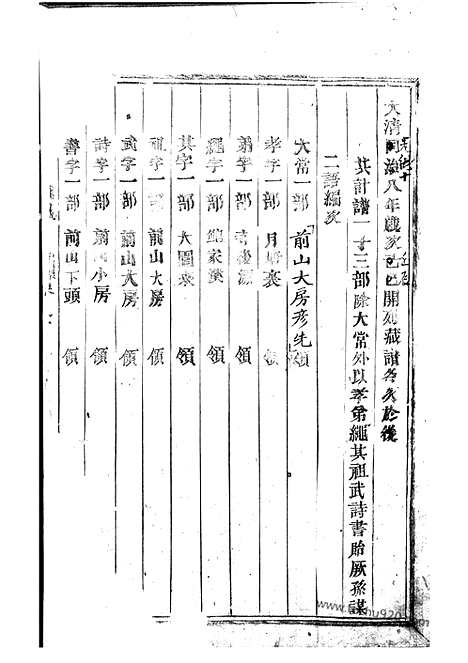 大清同治八年歲次己巳開列藏譜各人於後
光緒十 壬辰
共計譜一十三部除大常外以孝弟繩其祖武詩書貽厥孫謀
二語編次
大常一部 前山大房彥先領
孝字一部 月 裏 領
弟字一部 領
繩字一部 鮑家漢 領
其字一部 大園裏 領
祖字一部 前山大房 領
武字一部 前山大房 領
詩字一部 前山小房 領
書字一部 前山下頭 領